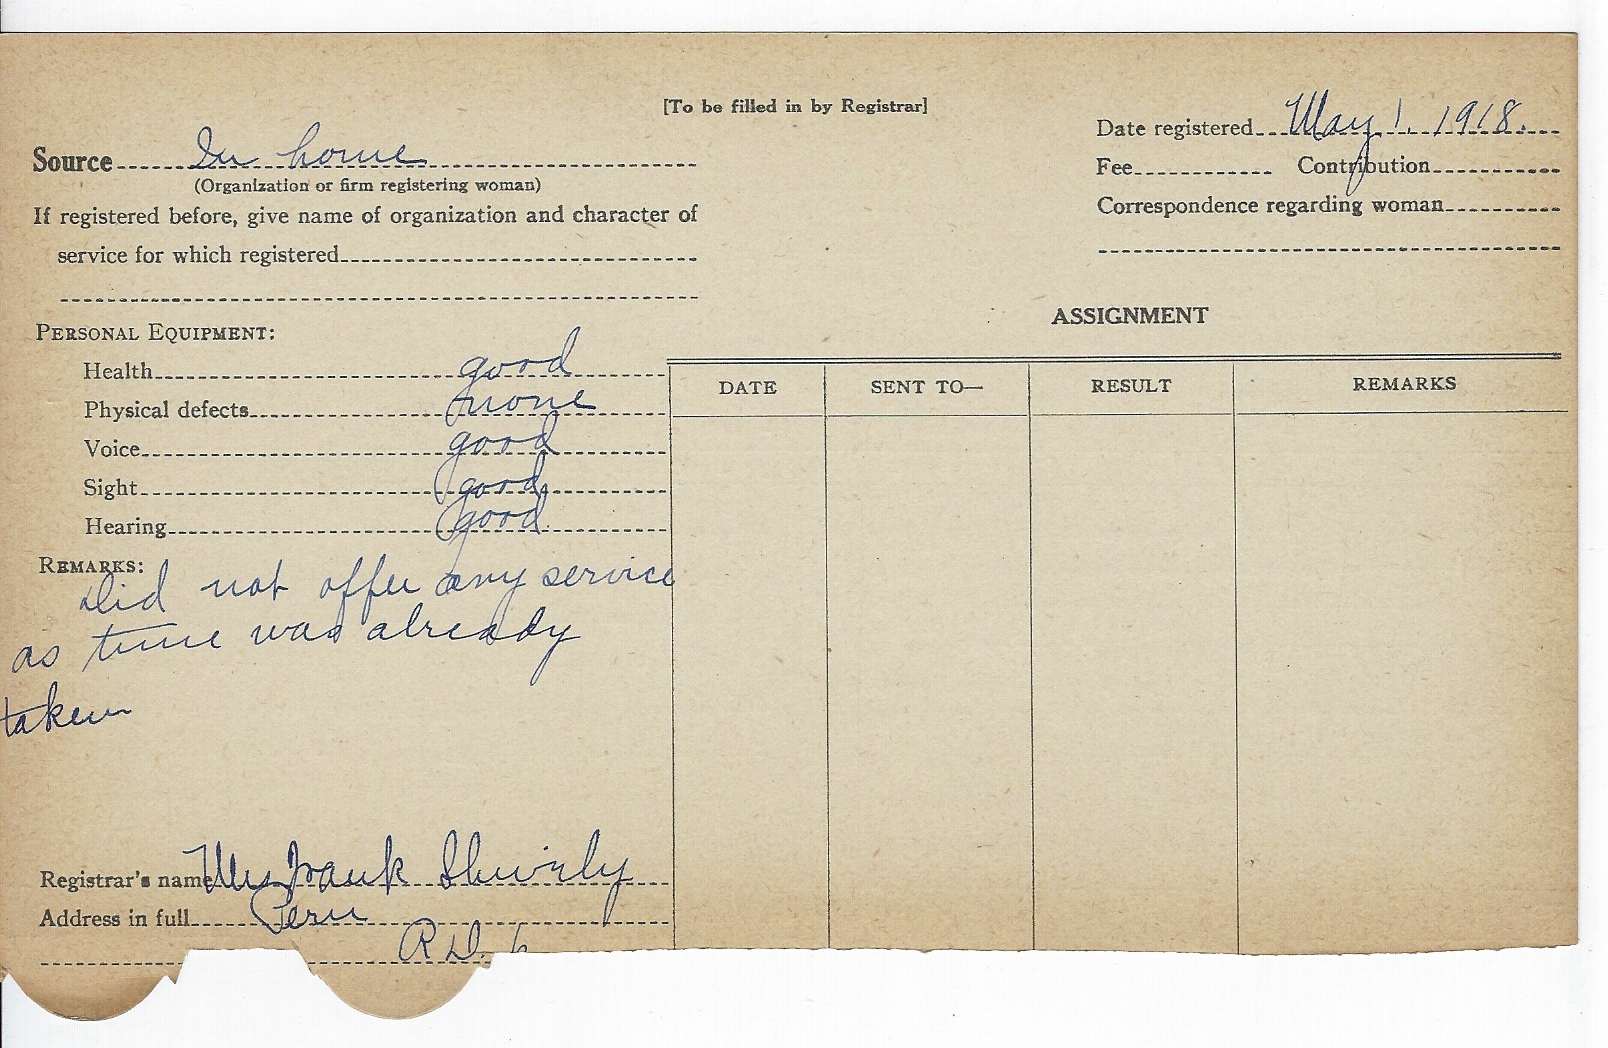 [To be filled in by Registrar]
Date registered May 1. 1918.
Source In home
Fee Contribution
(Organization or firm registering woman)
Correspondence regarding woman
If registered before, give name of organization and character of
service for which registered
ASSIGNMENT
PERSONAL EQUIPMENT:
Health good
DATE SENT TO— RESULT REMARKS
Physical defects none
Voice good
Sight good
Hearing good
REMARKS:
Did not offer any service
as time was already
taken
Registrar's name Mrs Frank
Address in full Peru
R D. 6